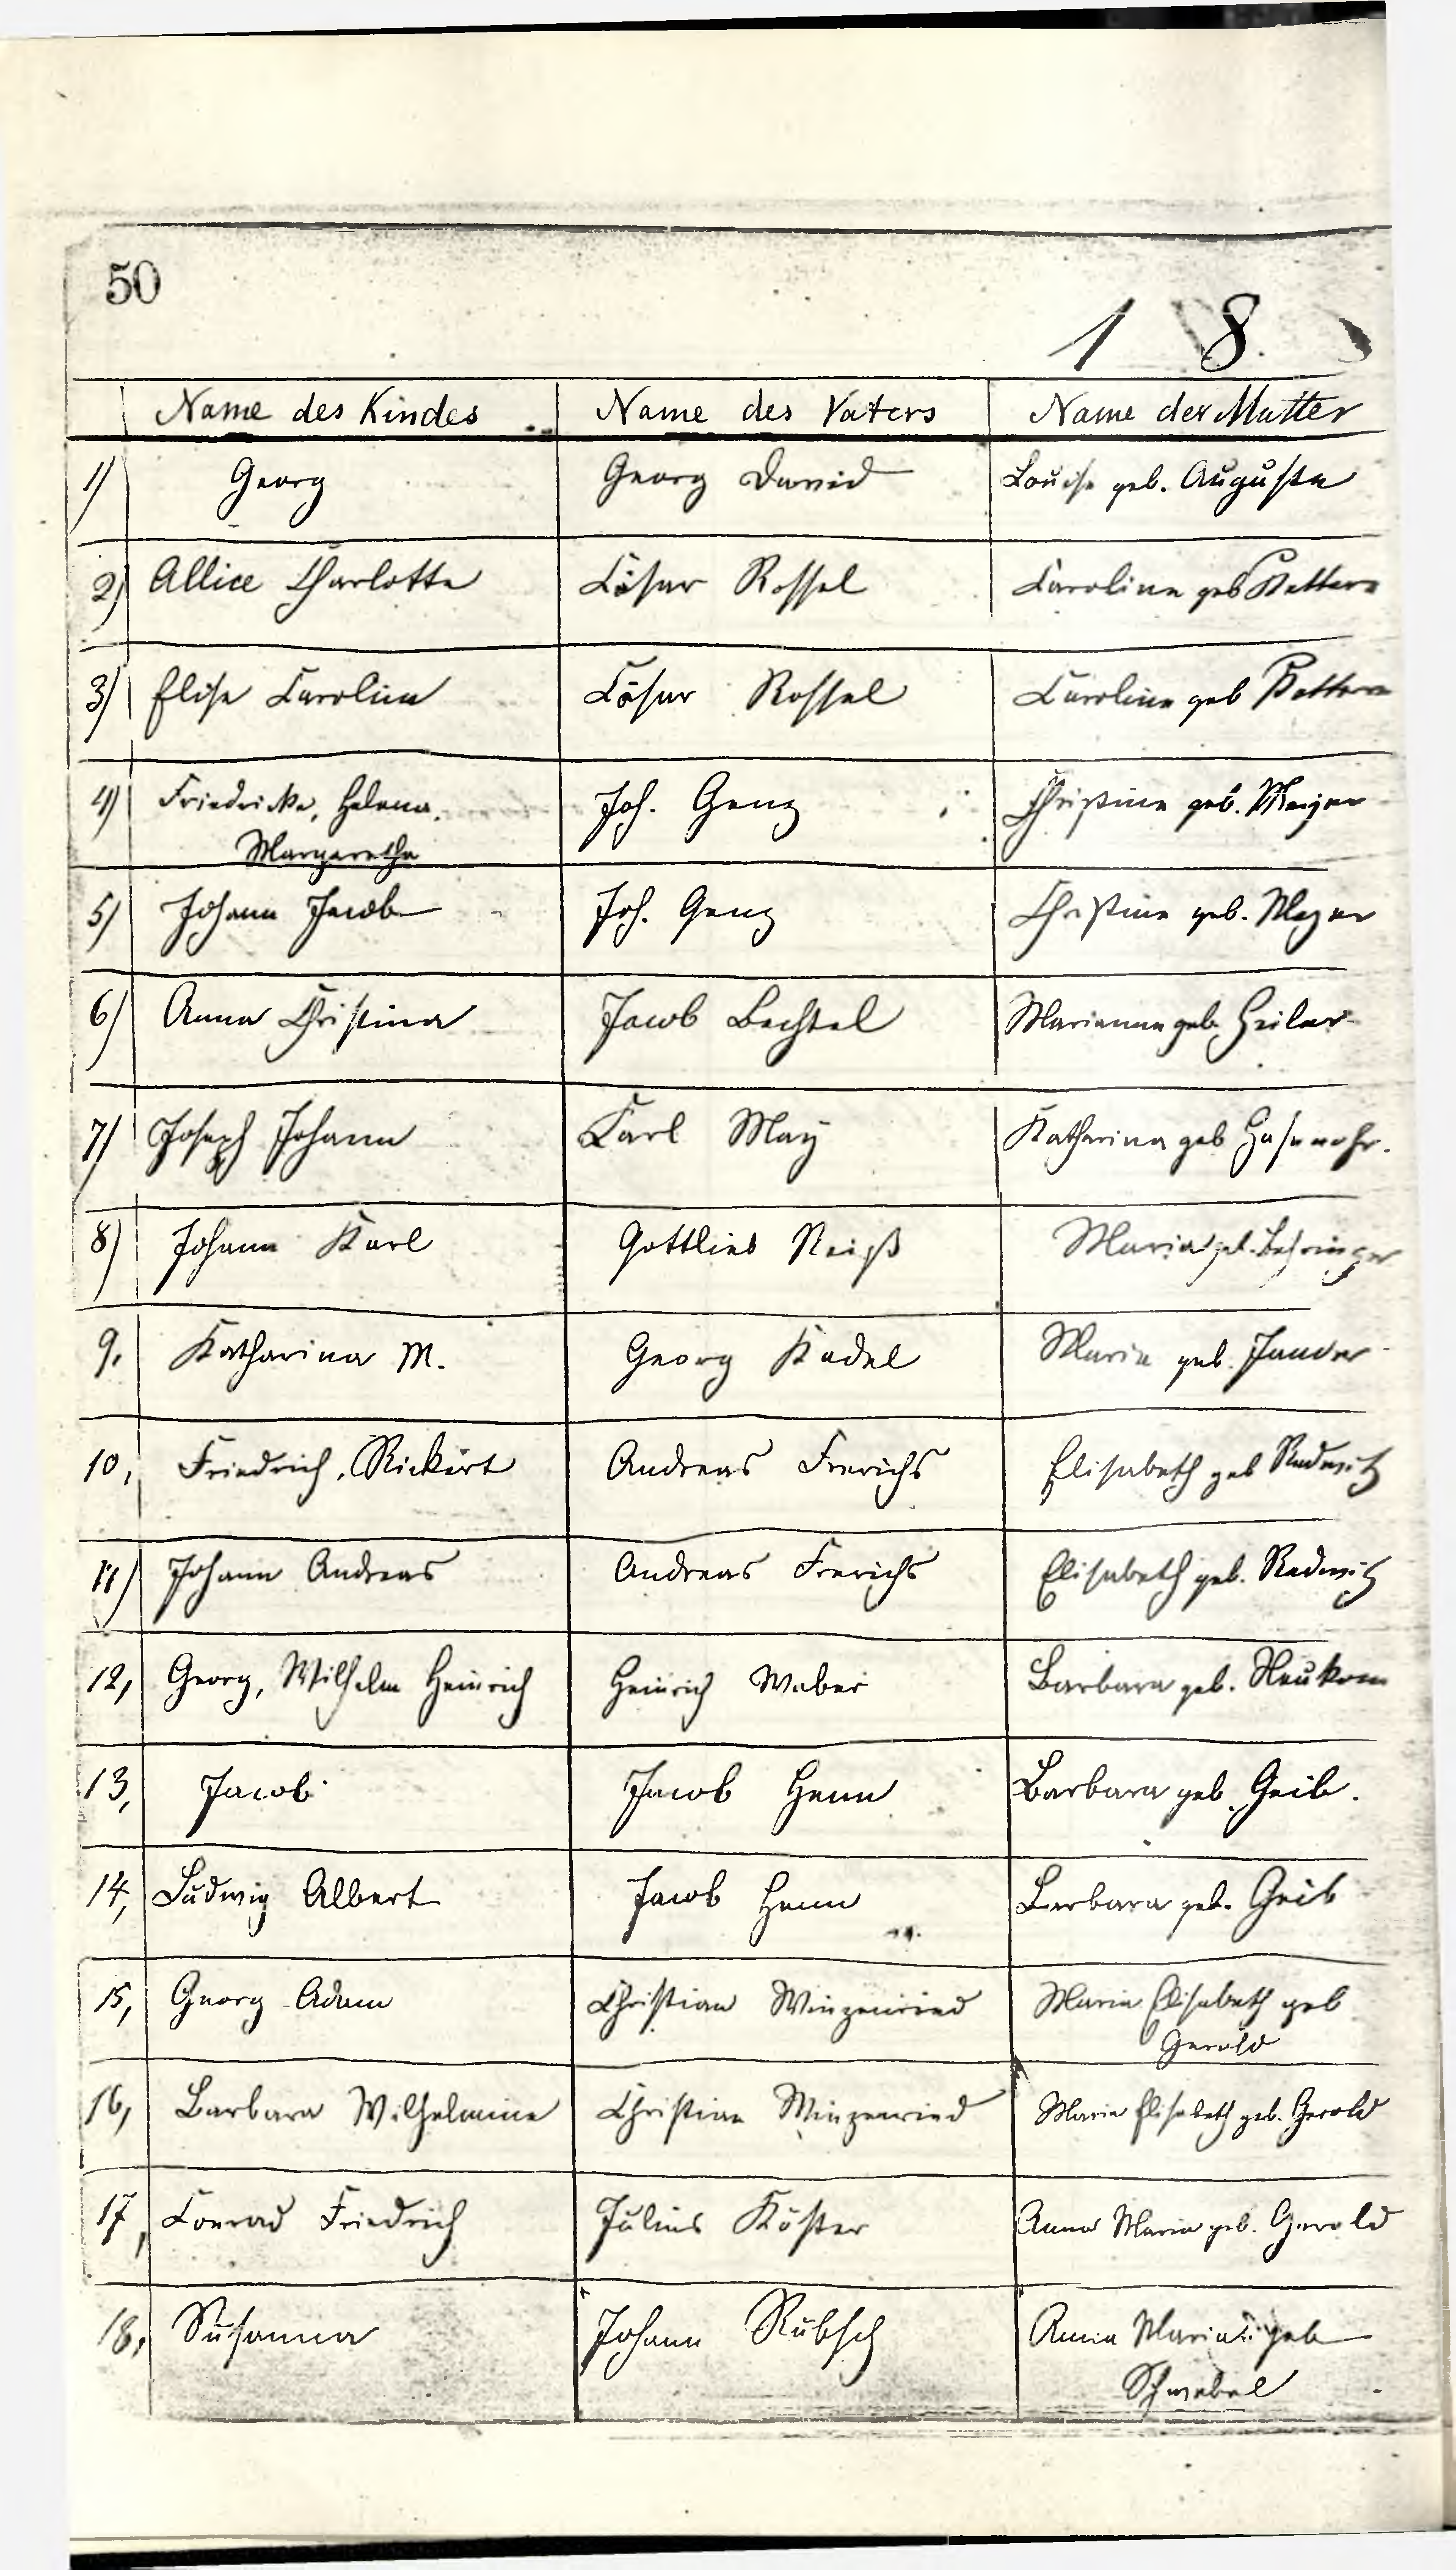 50
1 8
Name des Kindes Name des Vaters Name der Mutter
1) Georg Georg David Louise geb. Auguste
2) Allice Charlotte Cäsar Rossel Caroline geb
3) Elise Carolina Cäsar Rossel Caroline geb
4) Friedricke, Helena, Joh. Genz Christine geb. Meyer
Margaretha
5) Johann Jacob Joh. Genz Christine geb. Meyer
6) Anna Christina Jacob Bechtel Marianne geb. Heiler
7) Joseph Johann Carl May Katharina geb Hasenohr.
8) Johann Karl Gottlieb Reiß Maria geb. Behringer
9, Katharina M. Georg Kadel Maria geb.
10, Friedrich, Rickert Andreas Frerichs Elisabeth geb Radewitz
11) Johann Andreas Andreas Frerichs Elisabeth geb. Radewitz
12, Georg, Wilhelm Heinrich Heinrich Weber Barbara geb. Neukom
13, Jacob Jacob Henn Barbara geb. Geib.
14, Ludwig Albert Jacob Henn Barbara geb. Geib
15, Georg Adam Christian Winzenried Maria Elisabeth geb
Gerold
16, Barbara Wilhelmine Christian Winzenried Maria Elisabeth geb. Gerold
17, Conrad Friedrich Julius Köster Anna Maria geb. Gerold
18, Susanna Johann Rübsch Anna Maria geb
Schwebel